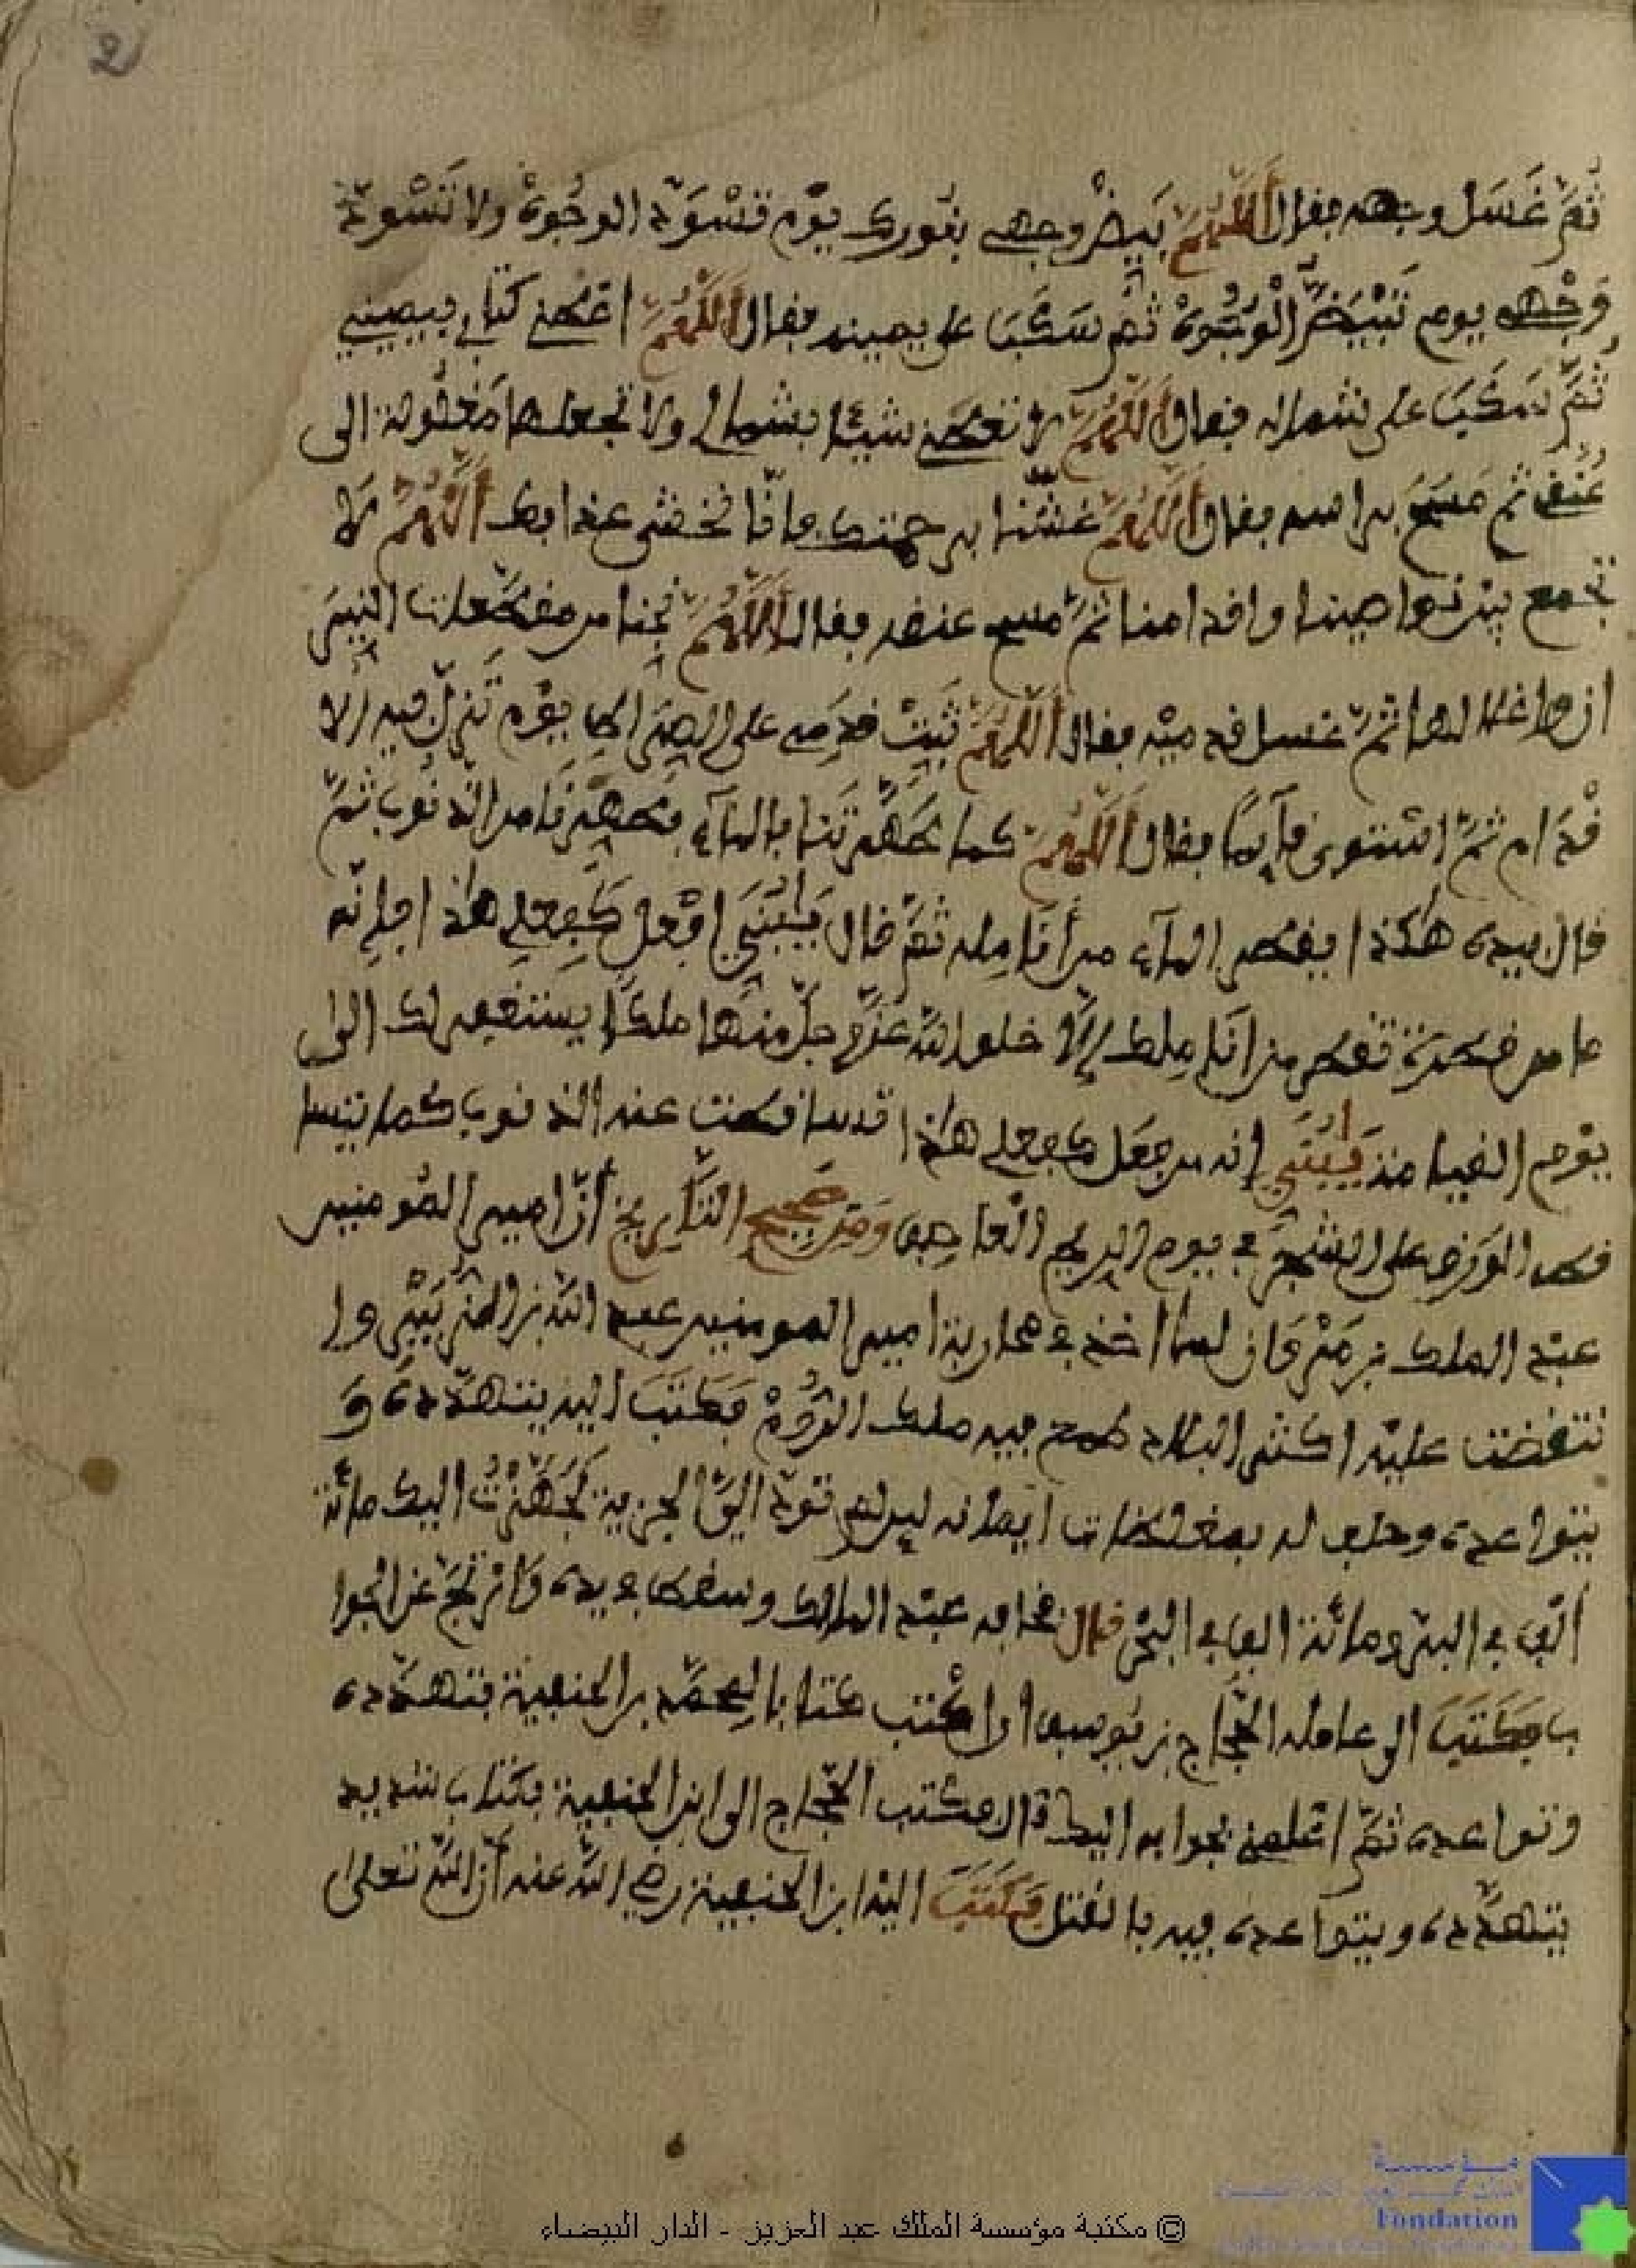 2
ثُمَّ غَسَلَ وجهه فقال اَللَّهُمَّ بَيِّضْ وجهى بنورك يوْم تسْوَدّ الوجُوهْ ولا تَسْودّ
وَجْهى يوم تَبْيَضُّ الْوُجُوهْ ثم سَكَبَ على يمينه فقال اَللَّهُمَّ اعطنى كتابى بيمينى
ثُمَّ سَكَبَ على شماله فقال اَللَّهُمَّ لا تعطنى شيئا بشمالى ولا تجعلها مَغْلُولة الى
عُنقى ثم مَسَحَ براسه فقال اَللَّهُمَّ غشّنا برحمتك فانّا نخشى عذابك اَللَّهُمَّ لا
تجمع بيْن نواصينا واقدامنا ثمّ مسح عنقه فقال اَللَّهُمَّ نجنا من مفطّعات النيرَ
ان واغلالها ثمّ غسل قدميْه فقال اَللَّهُمَّ ثَبِّتْ قدَمى على الصِّراط يوْم تَزِلّ فيه الا
قْدَام ثمَّ اسْتوى قآيمًا فقال اَللَّهُمَّ كما طَهَّرْتَنا بالمآء فطهِّرْنا من الذنُوب ثمّ
قال بيده هاكذا يفطر المآء من أنامله ثمَّ قال يَابُنَيَّ افْعل كَفِعلى هاذا فإنّه
ما من قطرة تفطر من انَاملك إلّا خلق الله عزّ وجلّ منها ملكًا يستغفر لك الى
يوْم القيامة يَابُنَيَّ إنه من فعَل كفعلى هاذا تساقطت عنه الذنوب كما يتسا
قط الوَرَق على الشجَر فى يوم الريح العاصف وَمن عَجِيب التَّاريخ أنّ امير المُومنين
عبْد الملك بن مَرْوَان لما اخذ فى محاربة امير المومنين عبد الله بن الزُّبَيْر وا
نتقضت عليْه اكثر البلاد طمع فيه ملك الرُّومْ فَكَتَبَ اليه يتهدّده وَ
يتواعده وحلف له بمغلظات ايمانه ليرلم تودّ اليَّ الجزية لَجَهَّزْتُ اليك مائة
ألْف فى البرّ ومائة الف فى البحْر قال فخافه عبْد الملك وسقط فى يده وَارْتجَّ عن الجوا
ب فَكَتَبَ الى عامله الحجَّاج بن يُوسف ان اكْتب كتابا لمحمّد بن الحنفية تتهدّده
وتواعده ثمَّ اعْلمنى بجوابه اليك قال فكتب الحجَّاج الى ابن الحنفية بكتاب شديد
يتهدَّده ويتواعده فيه بالقتل فَكَتَبَ اليْه ابن الحنفية رضى الله عنه أنّ الله تعلى
© مكتبة مؤسسة الملك عبد العزيز - الدار البيضاء
مؤسسة
Fondation